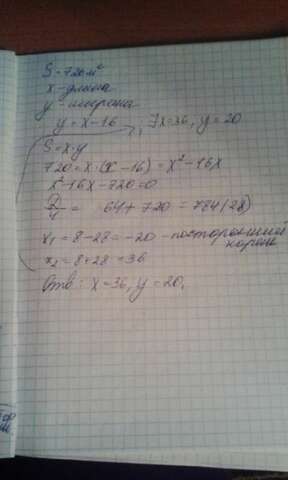 S - 720 м²
x - длина
y - ширина
y = x - 16, x = 36, y = 20
S = x · y
720 = x · (x - 16) = x² - 16x
x² - 16x - 720 = 0
D/4 = 64 + 720 = 784 (28)
x₁ = 8 - 28 = -20 - посторонний
корень
x₂ = 8 + 28 = 36
Отв: x = 36, y = 20.